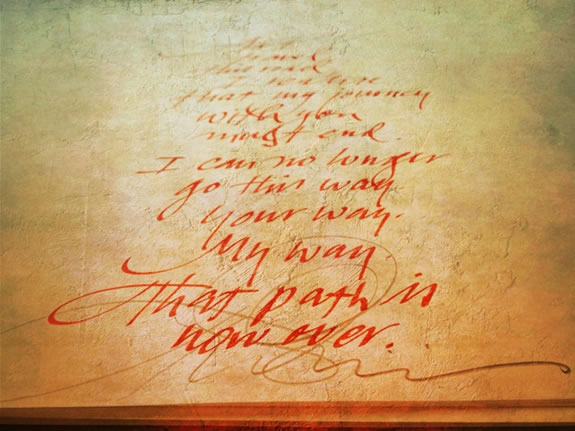 travel
this road
I
that my journey
with you
must end.
I can no longer
go this way
your way.
My way.
That path is
now over.